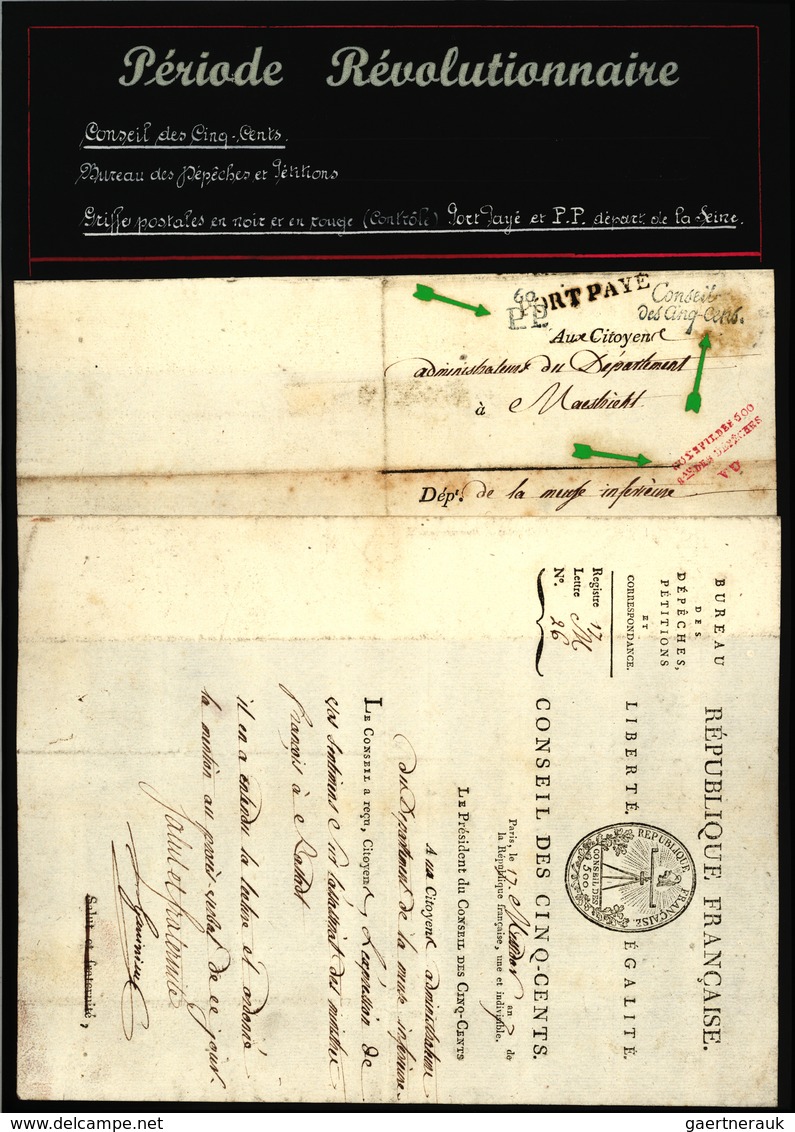 Période Révolutionnaire
Conseil des Cinq-Cents.
Bureau des Dépêches et Pétitions
Griffes postales en noir et en rouge (Contrôle) Port Payé et P.P. départ. de la Seine.
60
P.P.
PORT PAYÉ
Conseil
des Cinq-Cens.
Aux Citoyens
administrateurs du Département
à Maestricht
CONSEIL DES 500
Bau DES DEPÊCHES
VU
Dépt. de la meuse inferieure
BUREAU
DES
DÉPÊCHES,
PÉTITIONS
ET
CORRESPONDANCE.
Registre 17
Lettre M
No. 26
RÉPUBLIQUE FRANÇAISE.
LIBERTÉ. ÉGALITÉ.
REPUBLIQUE FRANÇAISE
CONSEIL DES
500
CONSEIL DES CINQ-CENTS.
Paris, le 17 an 7 de
la République française, une et indivisible.
LE Président du CONSEIL DES CINQ-CENTS
Aux Citoyens administrateurs
du Département de la meuse inferieure
LE CONSEIL a reçu, Citoyens, l'expression de
vos sentimens sur l'assassinat des ministres
français à Rastadt
il en a entendu la lecture et ordonné
la mention au procès-verbal de ce jour.
Salut et fraternité
Salut et fraternité,
gaertnerauk
gaertnerauk